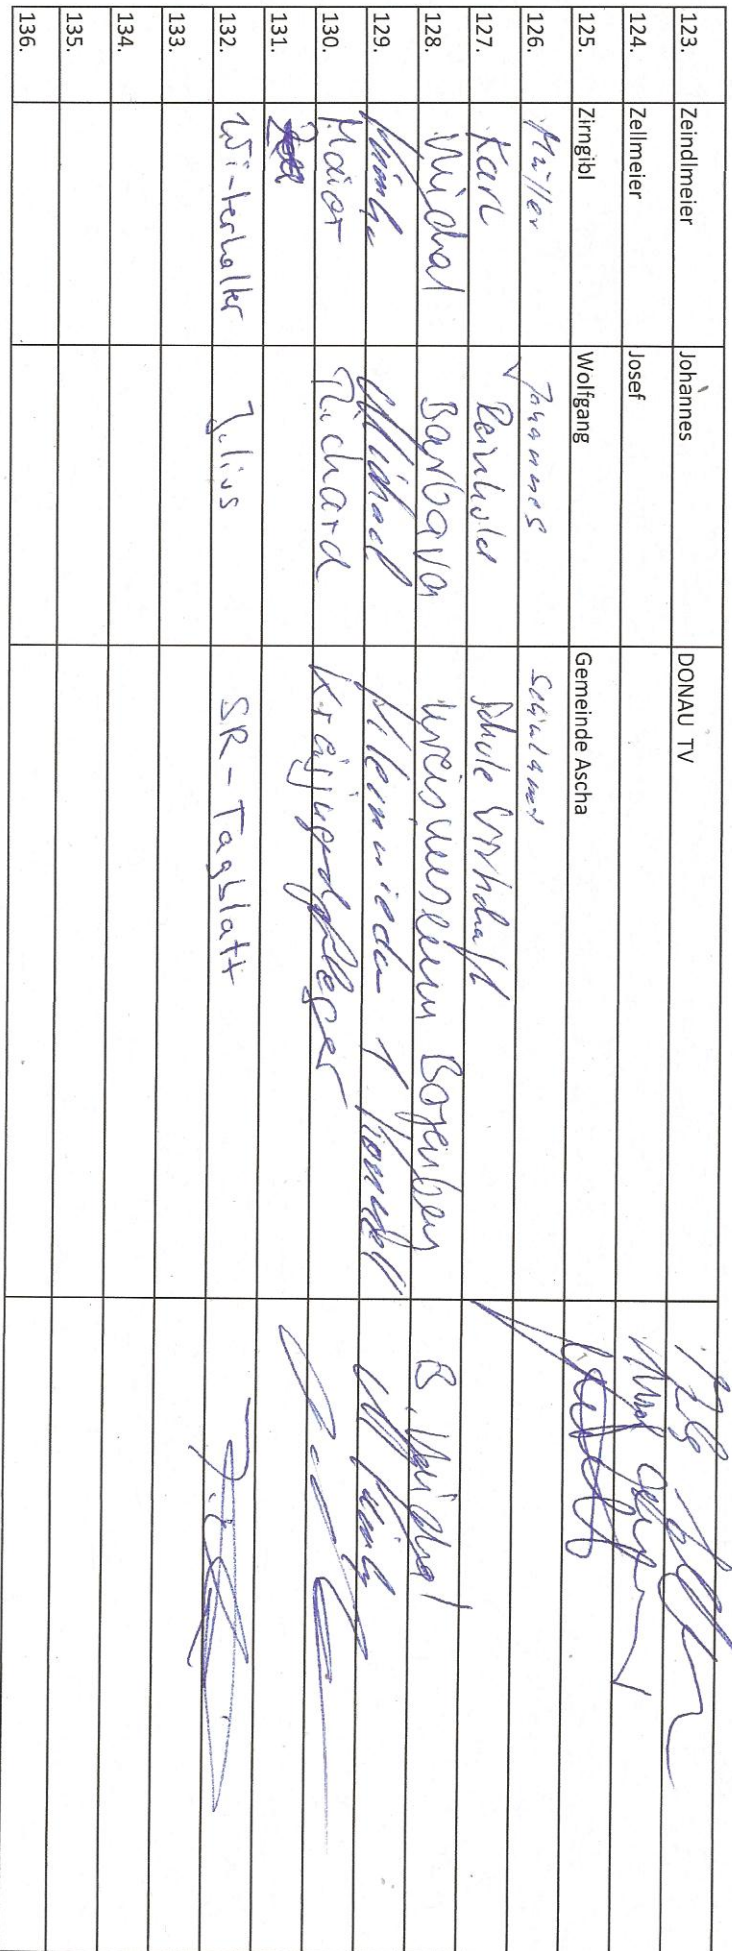 123. Zeindlmeier Johannes DONAU TV
124. Zellmeier Josef
125. Zirngibl Wolfgang Gemeinde Ascha
126. Müller Johannes Schulamt
127. Karl Reinhold Schule Wirtschaft
128. Michal Barbara Kreismuseum Bogenberg B. Michal
129. Michael
130. Maier Richard Kreisjugendpfleger
131.
132. Winterhalter Julius SR-Tagblatt
133.
134.
135.
136.